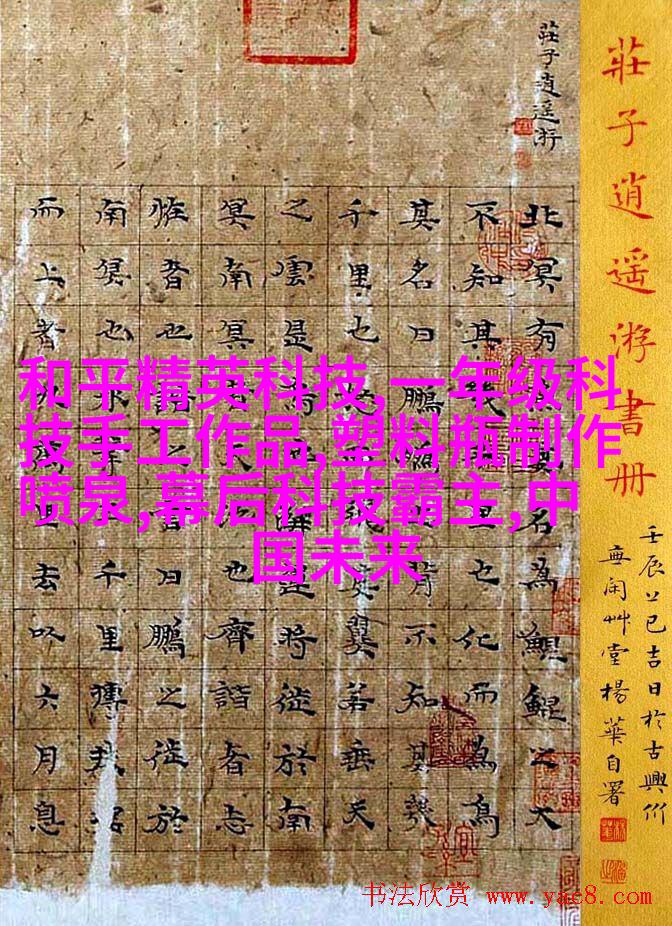 莊子逍遥游書册
壬辰乙巳吉日於古興州
無闲艸堂楊華自署
莊子逍遥游
北冥有魚其名為鯤鯤之大
不知其幾千里也化而為鳥
其名曰鵬鵬之背不知其幾
千里也怒而飛其翼若垂天
之雲是鳥也海運將徙於南
冥南冥者天池也齊諧者志
怪者也諧之言曰鵬之徙於
南冥也水擊三千里摶扶搖
而上者九萬里去以六月息
和平精英科技,一年级科
技手工作品,塑料瓶制作
喷泉,幕后科技霸主,中
国未来
书法欣赏 www.yac8.com